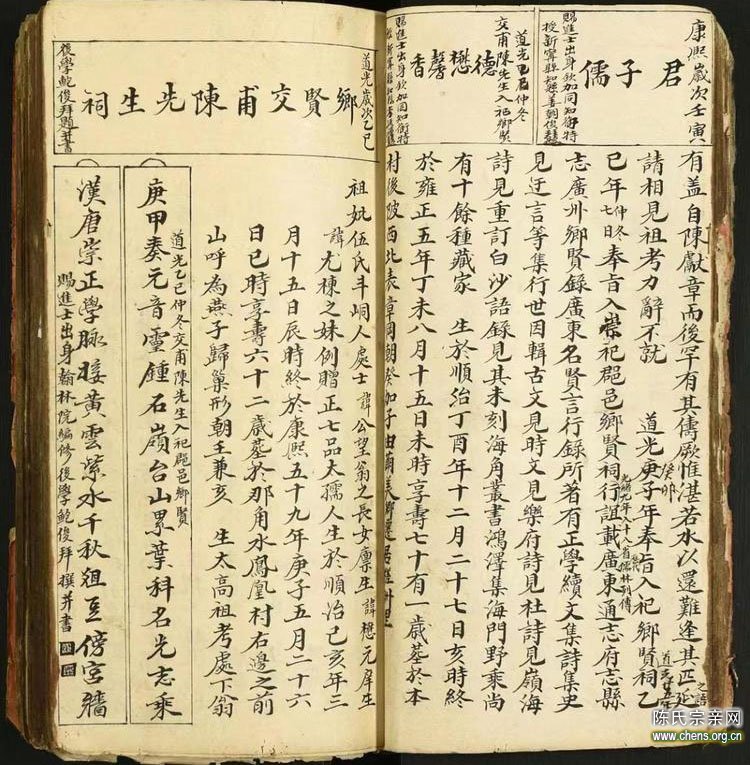 康熙歲次壬寅
君子儒
賜進士出身欽加同知銜特
授新寧縣知縣
道光乙巳仲冬
交甫陳先生入祀鄉賢
德懋馨香
賜進士出身欽加同知銜特
有盖自陳獻章而後罕有其儔厥惟湛若水以還難逢其匹延
之語
請相見祖考力辭不就
道光庚子年奉旨入祀鄉賢祠乙
癸卯
道光
巳年仲冬
七日奉旨入崇祀郡邑鄉賢祠行誼載廣東通志府志縣
志廣州鄉賢錄廣東名賢言行錄所著有正學續文集詩集史
儒林列傳
見迂言等集行世因輯古文見時文見樂府詩見杜詩見嶺海
詩見重訂白沙語錄見其未刻海角叢書鴻澤集海門野乘尚
有十餘種藏家
生於順治丁酉年十二月二十七日亥時終
於雍正五年丁未八月十五日未時享壽七十有一歲墓於本
村後陂西北表章岡朝癸加子
道光歲次乙巳
鄉賢交甫陳先生祠
後學鮑俊拜題并書
祖妣伍氏斗峒人處士諱公望翁之長女廩生諱懋元庠生
諱尤棟之妹例贈正七品太孺人生於順治己亥年三
月十五日辰時終於康熙五十九年庚子五月二十六
日巳時享壽六十二歲墓於那角水鳳凰村右邊之前
山呼為燕子歸巢形朝壬兼亥
生太高祖考處下翁
道光乙巳仲冬交甫陳先生入祀郡邑鄉賢
庚甲奏元音靈鍾石嶺台山累葉科名光志乘
漢唐崇正學脉接黃雲紫水千秋俎豆傍宮牆
賜進士出身翰林院編修後學鮑俊拜撰并書
陈氏宗亲网
www.chens.org.cn